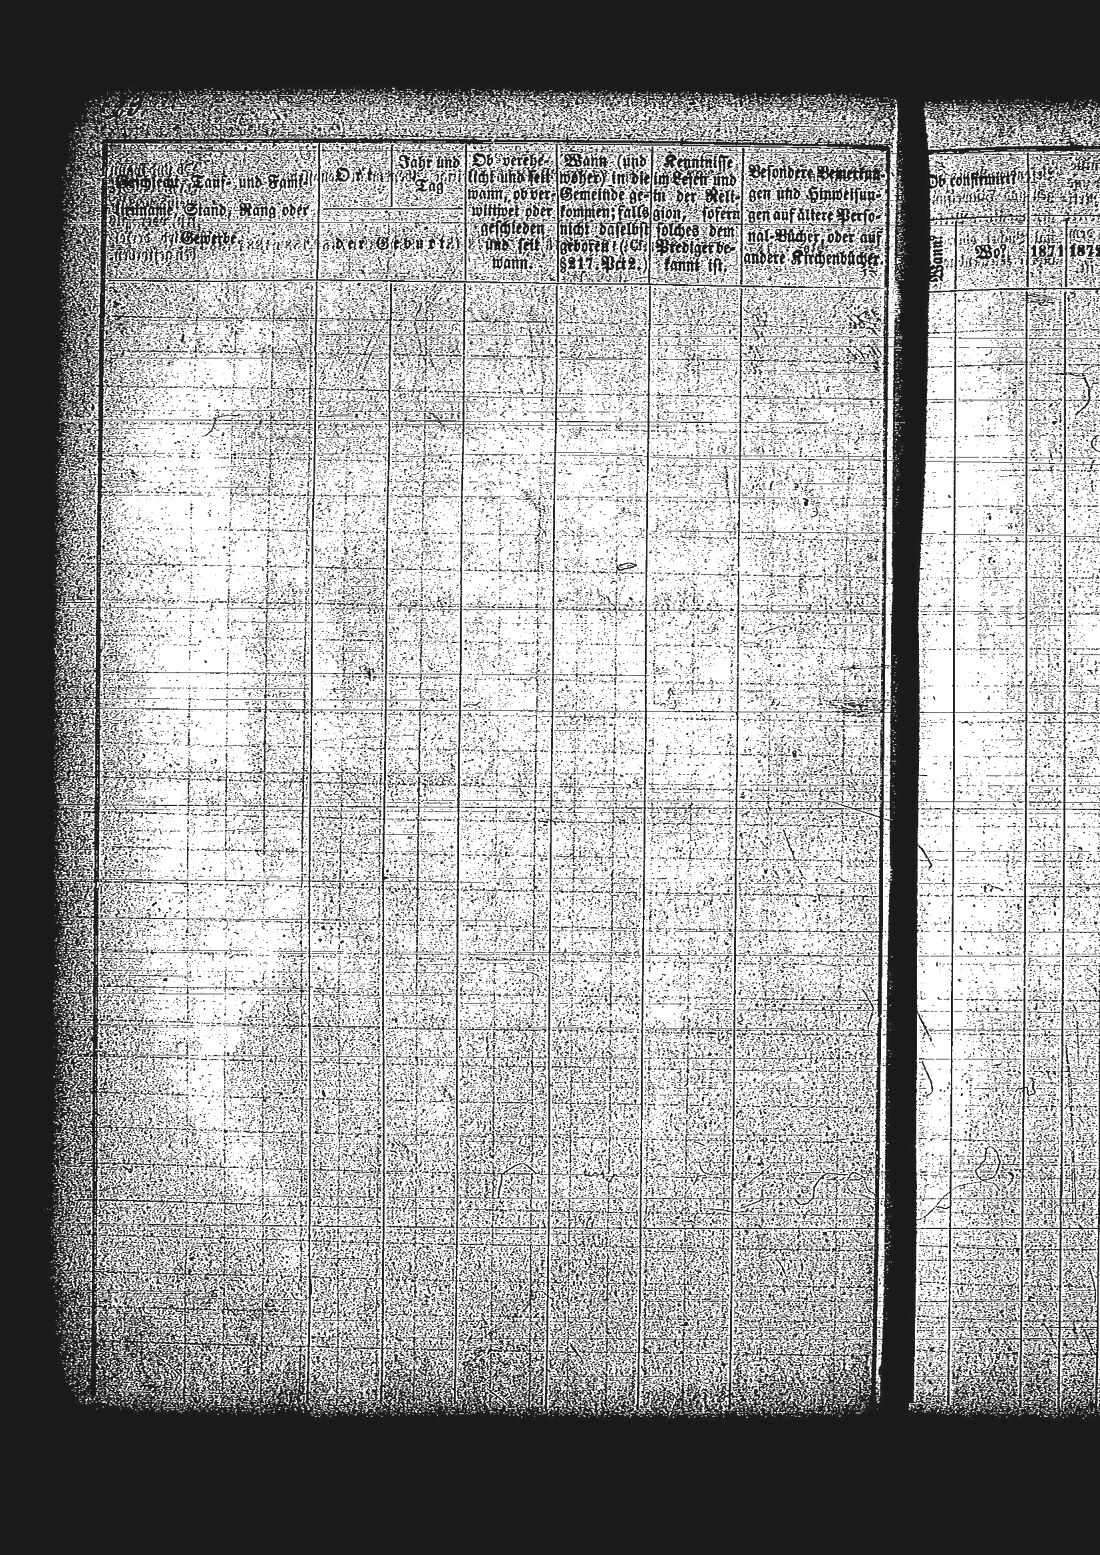 Geschlecht, Tauf- und Famil-
lienname, Stand, Rang oder
Gewerbe.
Ort
Jahr und
Tag
der Geburt.
Ob verehe-
licht und seit
wann, ob ver-
wittwet oder
geschieden
und seit
wann.
Wann (und
woher) in die
Gemeinde ge-
kommen; falls
nicht daselbst
geboren (Cf.
§ 217. Pct 2.)
Kenntnisse
im Lesen und
in der Reli-
gion, sofern
solches dem
Prediger be-
kannt ist.
Besondere Bemerkun-
gen und Hinweisun-
gen auf ältere Perso-
nal-Bücher, oder auf
andere Kirchenbücher.
Ob confirmirt?
Wann?
Wo?
1871
1872